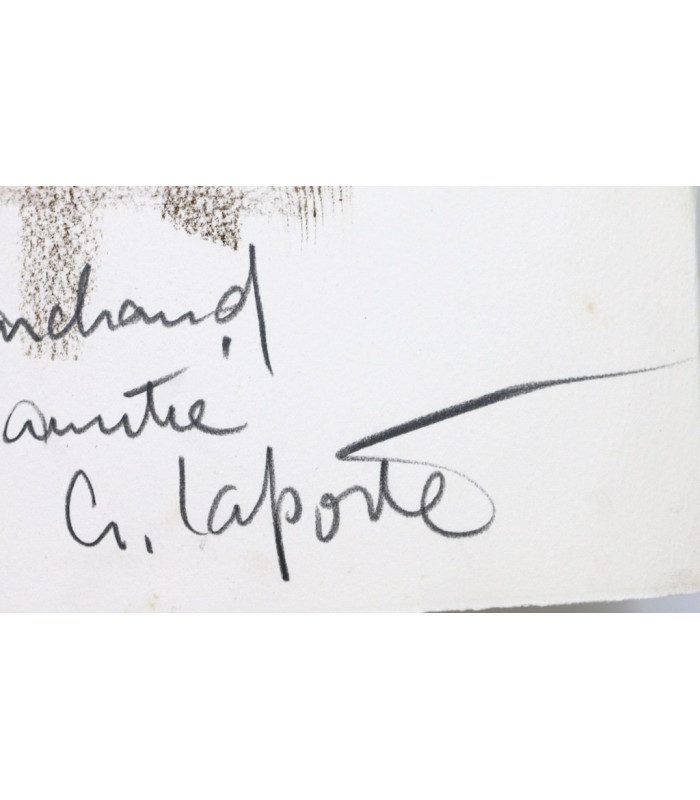 archand
amitié
G. Laporte